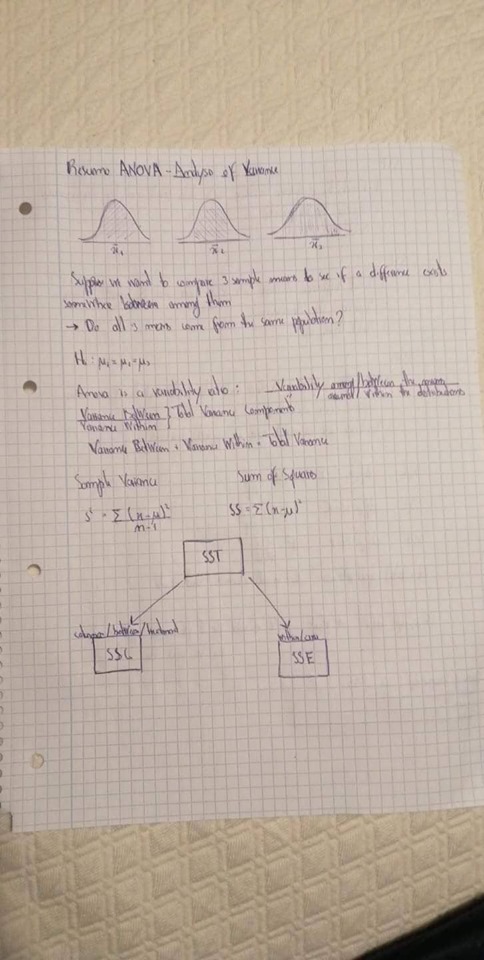 Resumo ANOVA - Analyse of Variance
x̄₁ x̄₂ x̄₃
Suppose we want to compare 3 sample means to see if a difference exists
somewhere between among them
→ Do all 3 means come from the same population?
H₀: μ₁ = μ₂ = μ₃
Anova is a variability ratio: Variability among/between the means
around/within the distributions
Variance Between } Total Variance Components
Variance Within
Variance Between + Variance Within = Total Variance
Sample Variance Sum of Squares
S² = Σ(x-μ)² SS = Σ(x-μ)²
n-1
SST
columns/between/treatment within/error
SSC SSE